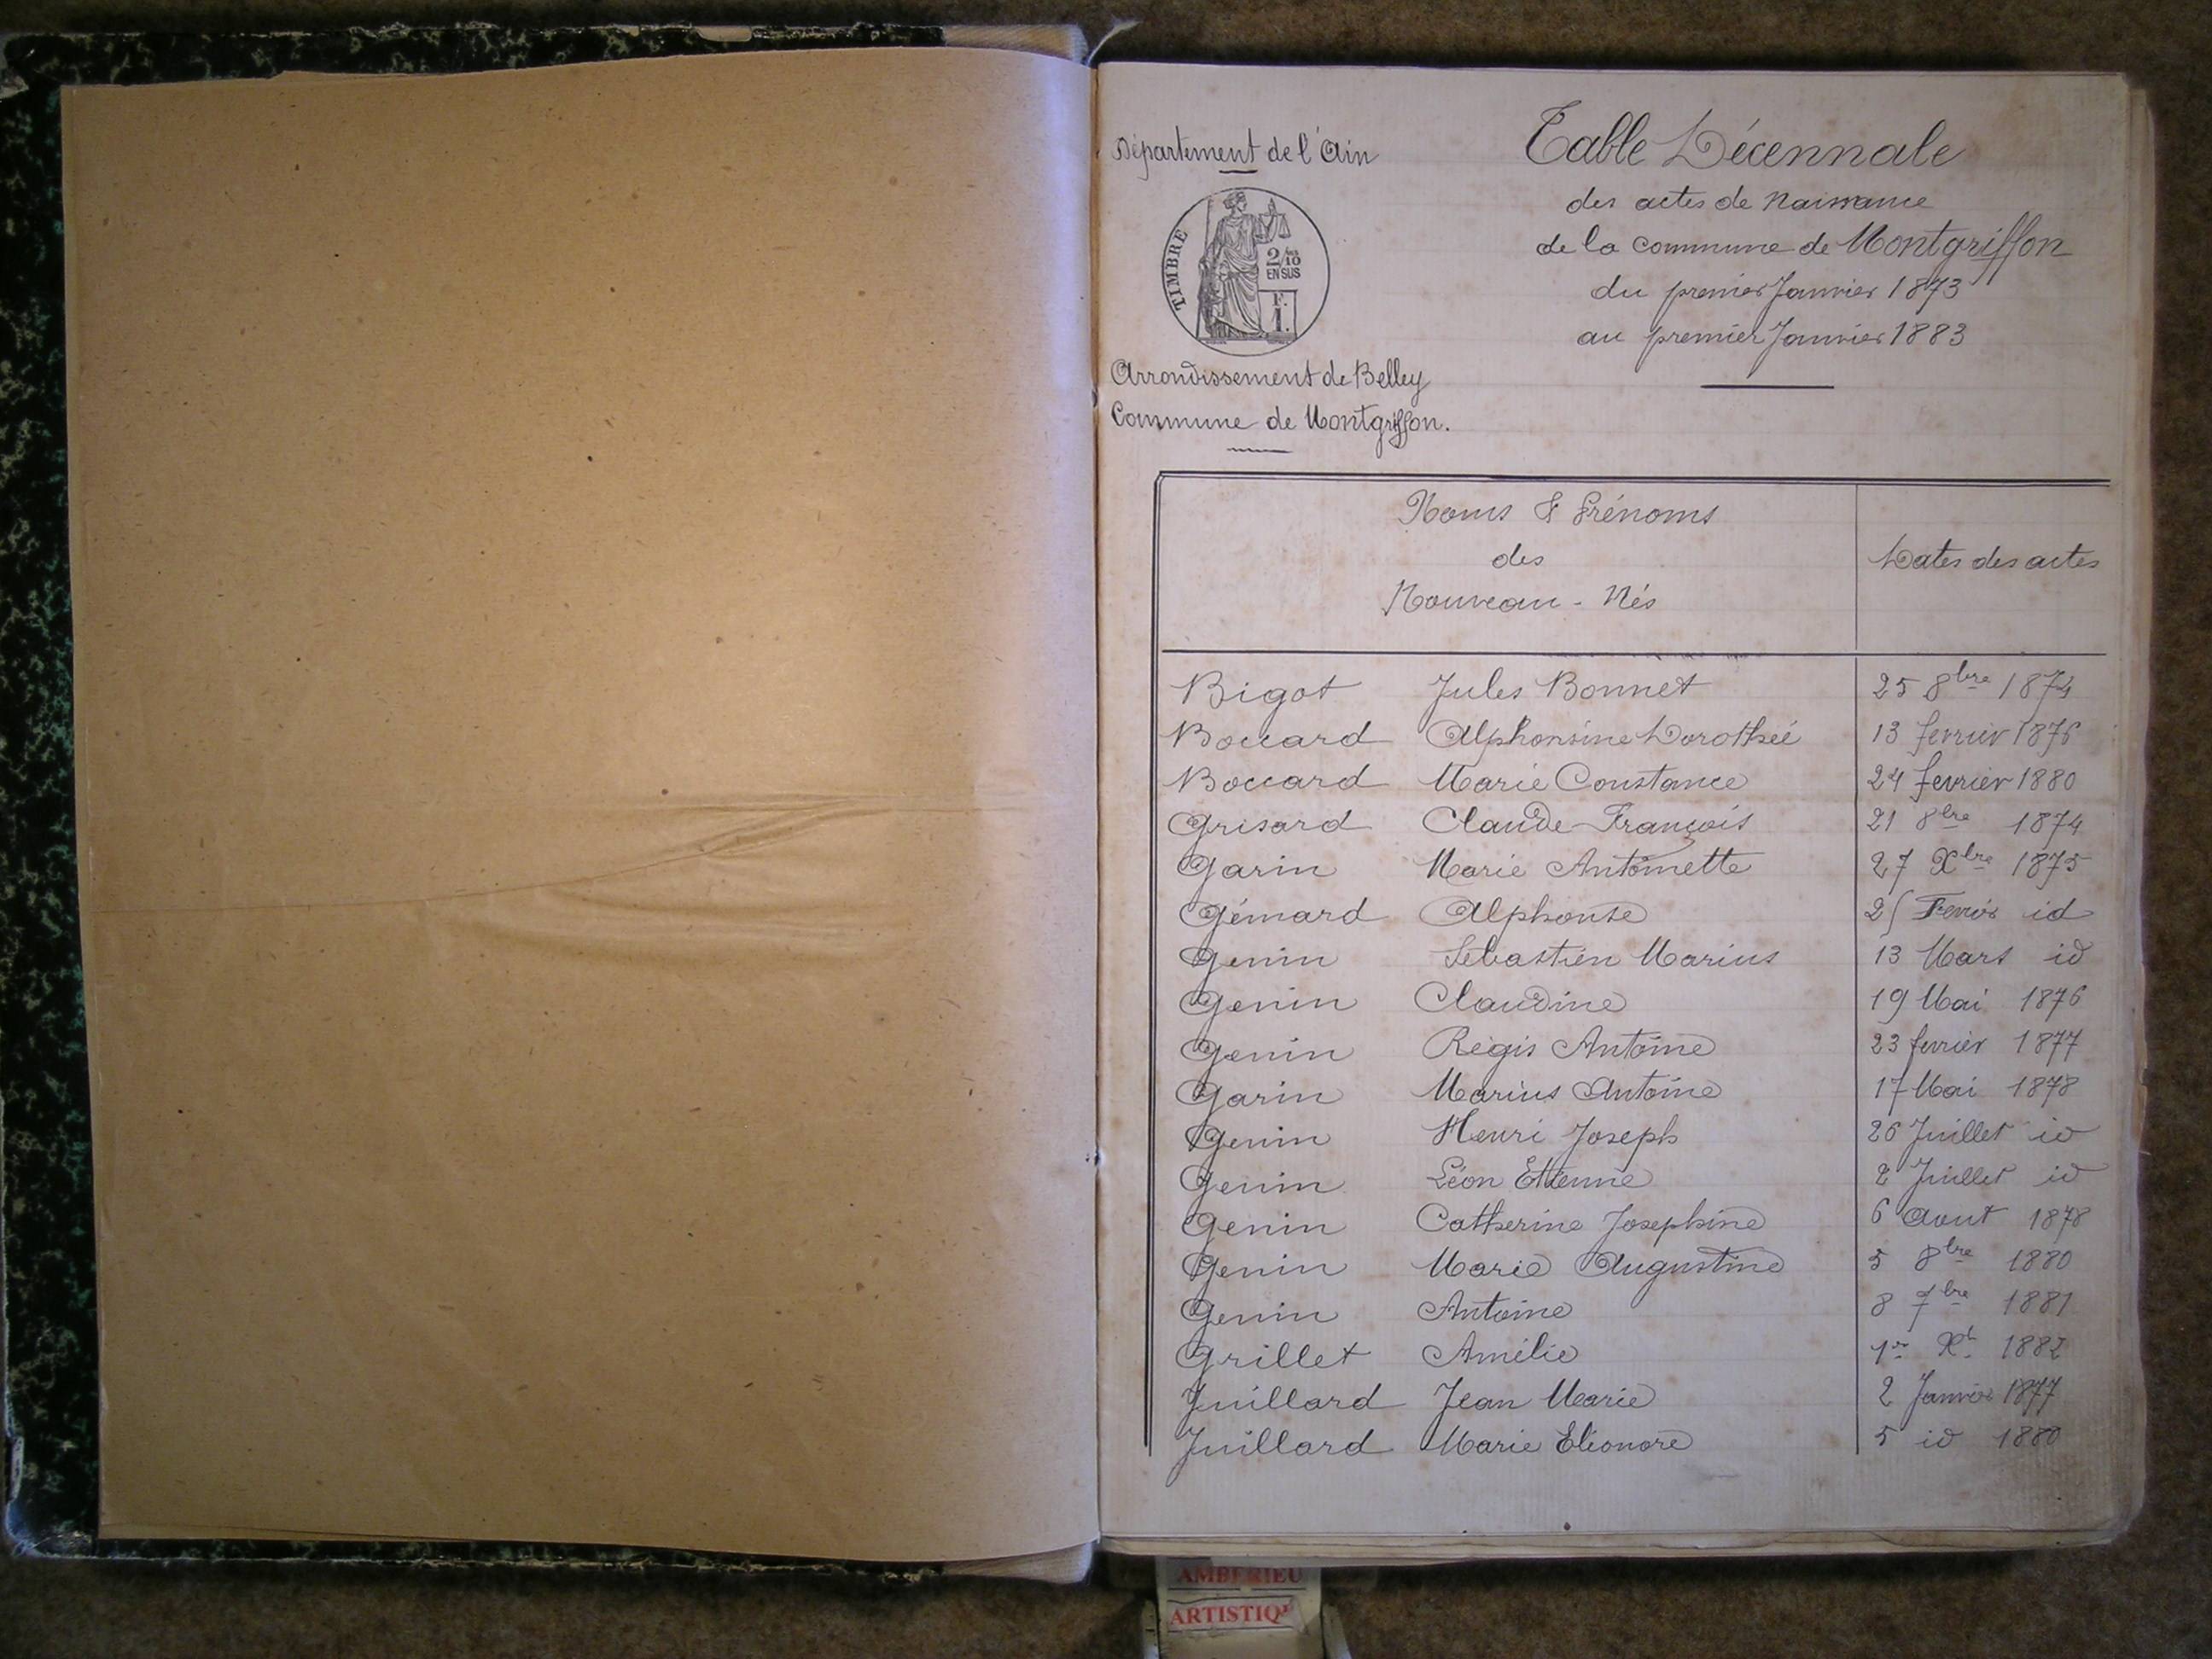 Département de l'Ain
TIMBRE
2/10
EN SUS
F.
1.
Arrondissement de Belley
Commune de Montgriffon.
Table Décennale
des actes de Naissance
de la commune de Montgriffon
du premier Janvier 1873
au premier Janvier 1883
Noms & Prénoms
des
Nouveau - Nés
Dates des actes
Bigot Jules Bonnet 25 8bre 1874
Boccard Alphonsine Dorothée 13 fevrier 1876
Boccard Marie Constance 24 fevrier 1880
Grisard Claude François 21 8bre 1874
Garin Marie Antoinette 27 Xbre 1875
Gémard Alphonse Fevrier id
Genin Sebastien Marius 13 Mars id
Genin Claudine 19 Mai 1876
Genin Régis Antoine 23 fevrier 1877
Garin Marius Antoine 17 Mai 1878
Genin Henri Joseph 26 Juillet id
Genin Léon Etienne 2 Juillet id
Genin Catherine Josephine 6 Aout 1878
Genin Marie Augustine 5 8bre 1880
Genin Antoine 8 7bre 1881
Grillet Amélie 1er Xb 1882
Juillard Jean Marie 2 Janvier 1877
Juillard Marie Elionore 5 id 1880
AMBERIEU
ARTISTIQ